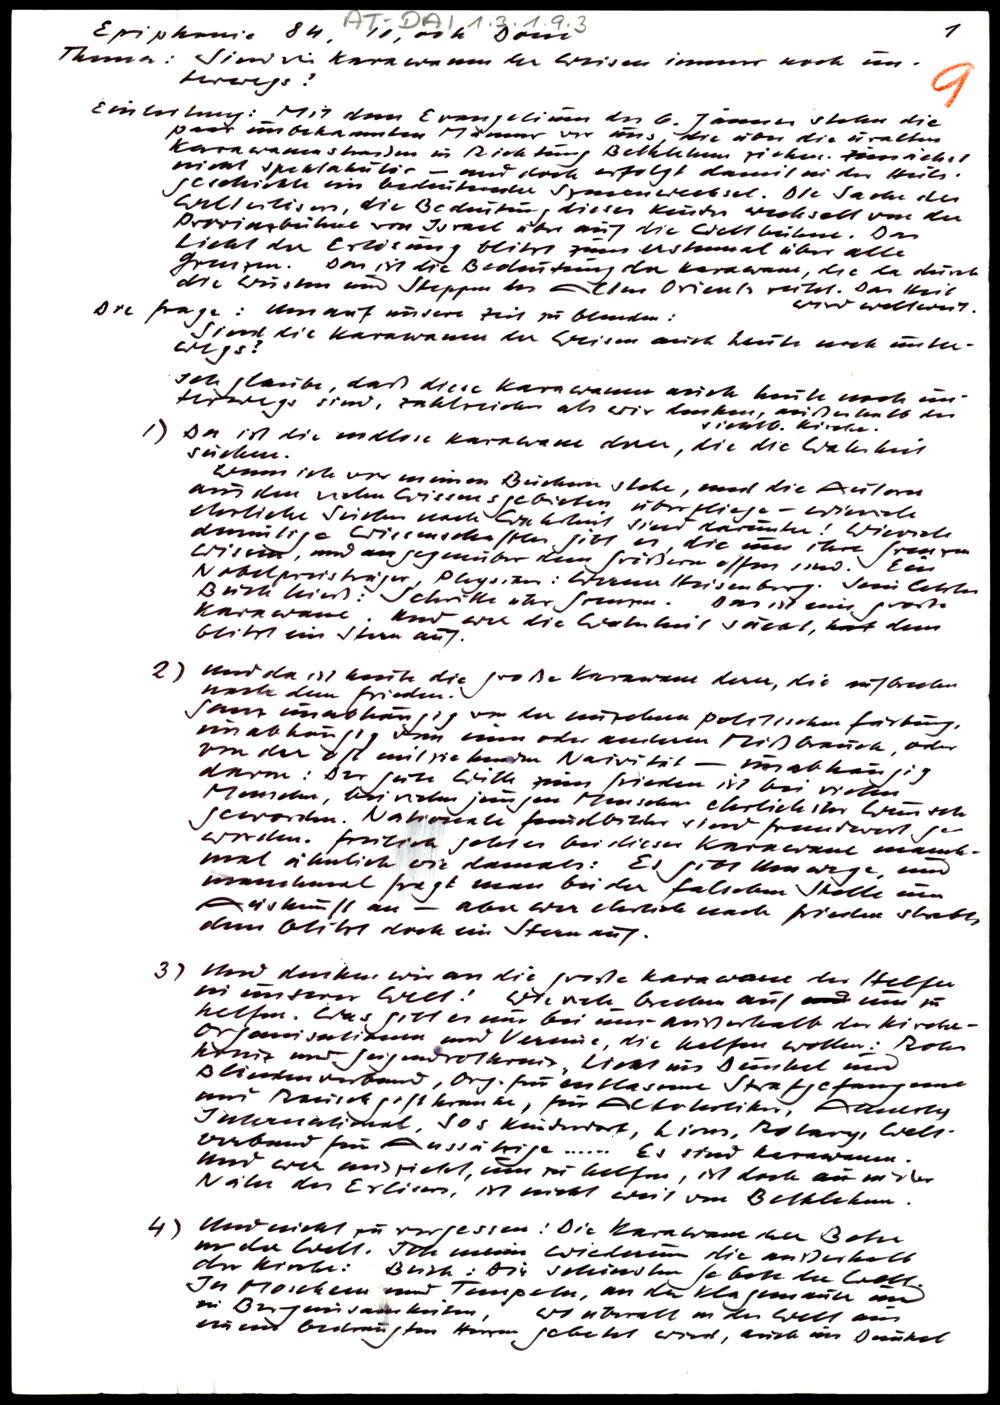 AT-DAI 1.3.1.9.3
Epiphanie 84, 10, ooh Dom
1
Thema: Sind die Karawanen der Weisen immer noch un-
terwegs?
9
Einleitung: Mit dem Evangelium des 6. Jänner stehen die
paar unbekannten Männer vor uns, die über die uralten
Karawanenstraßen in Richtung Bethlehem ziehen. Zunächst
nicht spektakulär – und doch erfolgt damit in der Heils-
geschichte ein bedeutender Szenenwechsel. Die Sache des
Welterlösers, die Bedeutung dieses Kindes wechselt von der
Provinzbühne von Israel über auf die Weltbühne. Das
Licht der Erlösung blitzt zum erstenmal über alle
Grenzen. Das ist die Bedeutung der Karawane, die da durch
die Wüsten und Steppen des Alten Orients reitet. Das Heil
wird weltweit.
Die Frage: Um auf unsere Zeit zu blenden:
Sind die Karawanen der Weisen auch heute noch unter-
wegs?
Ich glaube, daß diese Karawanen auch heute noch un-
terwegs sind, zahlreicher als wir denken, außerhalb der
sichtb. Kirche.
1) Da ist die endlose Karawane derer, die die Wahrheit
suchen.
Wenn ich vor meinen Büchern stehe, und die Autoren
aus den vielen Wissensgebieten überfliege – wieviele
ehrliche Sucher nach Wahrheit sind darunter! Wieviele
demütige Wissenschaftler gibt es, die um ihre Grenzen
wissen, und gegenüber dem Größern offen sind. Ein
Nobelpreisträger, Physiker: Werner Heisenberg. Sein letztes
Buch hieß: Schritte über Grenzen. Das ist eine große
Karawane. Und wer die Wahrheit sucht, dem
blitzt ein Stern auf.
2) Und da ist heute die große Karawane derer, die aufbrechen
nach dem Frieden.
Ganz unabhängig von der einzelnen politischen Färbung,
unabhängig vom einen oder anderen Mißbrauch, oder
von der oft mitziehenden Naivität – unabhängig
davon: Der gute Wille zum Frieden ist bei vielen
Menschen, bei vielen jungen Menschen ehrlichster Wunsch
geworden. Nationale Feindbilder sind fremdwort ge-
worden. Freilich geht es bei dieser Karawane manch-
mal ähnlich wie damals: Es gibt Umwege, und
manchmal fragt man bei der falschen Stelle um
Auskunft an – aber wer ehrlich nach Frieden strebt
dem blitzt doch ein Stern auf.
3) Und denken wir an die große Karawane der Helfer
in unserer Welt! Wieviele brechen auf um zu
helfen. Was gibt es nur bei uns außerhalb der Kirche –
Organisationen und Vereine, die helfen wollen: Rotes
Kreuz und Jugendrotkreuz, Licht ins Dunkel und
Blindenverband, Org. für entlassene Strafgefangene
und Rauschgiftkranke, für Alkoholiker, Amnesty
International, SOS Kinderdorf, Lions, Rotary, Welt-
verband für Aussätzige ...... Es sind Karawanen.
Und wer auszieht, um zu helfen, ist doch in der
Nähe des Erlösers, ist nicht weit von Bethlehem.
4) Und nicht zu vergessen: Die Karawane der Beter
in der Welt. Ich meine wiederum die außerhalb
der Kirche: Buch: Die schönsten Gebete der Welt.
In Moscheen und Tempeln, an der Klagemauer und
in Bergeinsamkeiten, wo überall in der Welt aus
einem bedrängten Herzen gebetet wird, auch im Dunkel